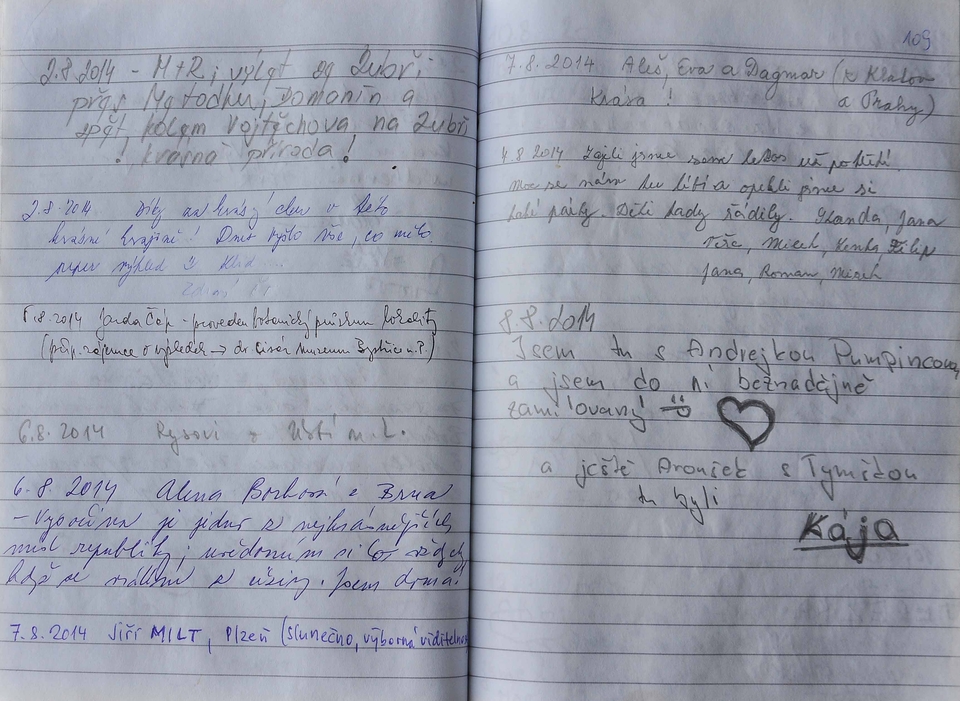 2.8.2014 - M+R, výlet ze Zubří
přes Domanín a
zpět, kolem Vojtěchova, na Zubří
! krásná příroda!
2.8.2014 Díky za krásný den v této
krásné krajině! Dnes vyšlo vše, co mělo
super výhled a klid
6.8.2014 Jarda Čáp - proveden botanický průzkum lokality
(příp. zájemce o výsledek → do muzeum Bystřice n. P.)
6.8.2014 Rysovi z Ústí n. L.
6.8.2014 Alena z Brna
- Vysočina je jedno z nejkrásnějších
míst republiky; uvědomím si to vždycky,
když se vrátím z ciziny. Jsem doma!
7.8.2014 Jiří MILT, Plzeň (slunečno, výborná viditelnost
109
7.8.2014 Aleš, Eva a Dagmar (z Klatov
Krása! a Prahy)
8 2014 Zašli jsme sem letos
Moc se nám tu líbí a opekli jsme si
také párky. Děti tady řádily. Standa, Jana
Filip
Jana, Roman,
8.8.2014
Jsem tu s Andrejkou Pumpincovou
a jsem do ní beznadějně
zamilovaný
a ještě Aroniek s Tymičkou
tu byli
Kája